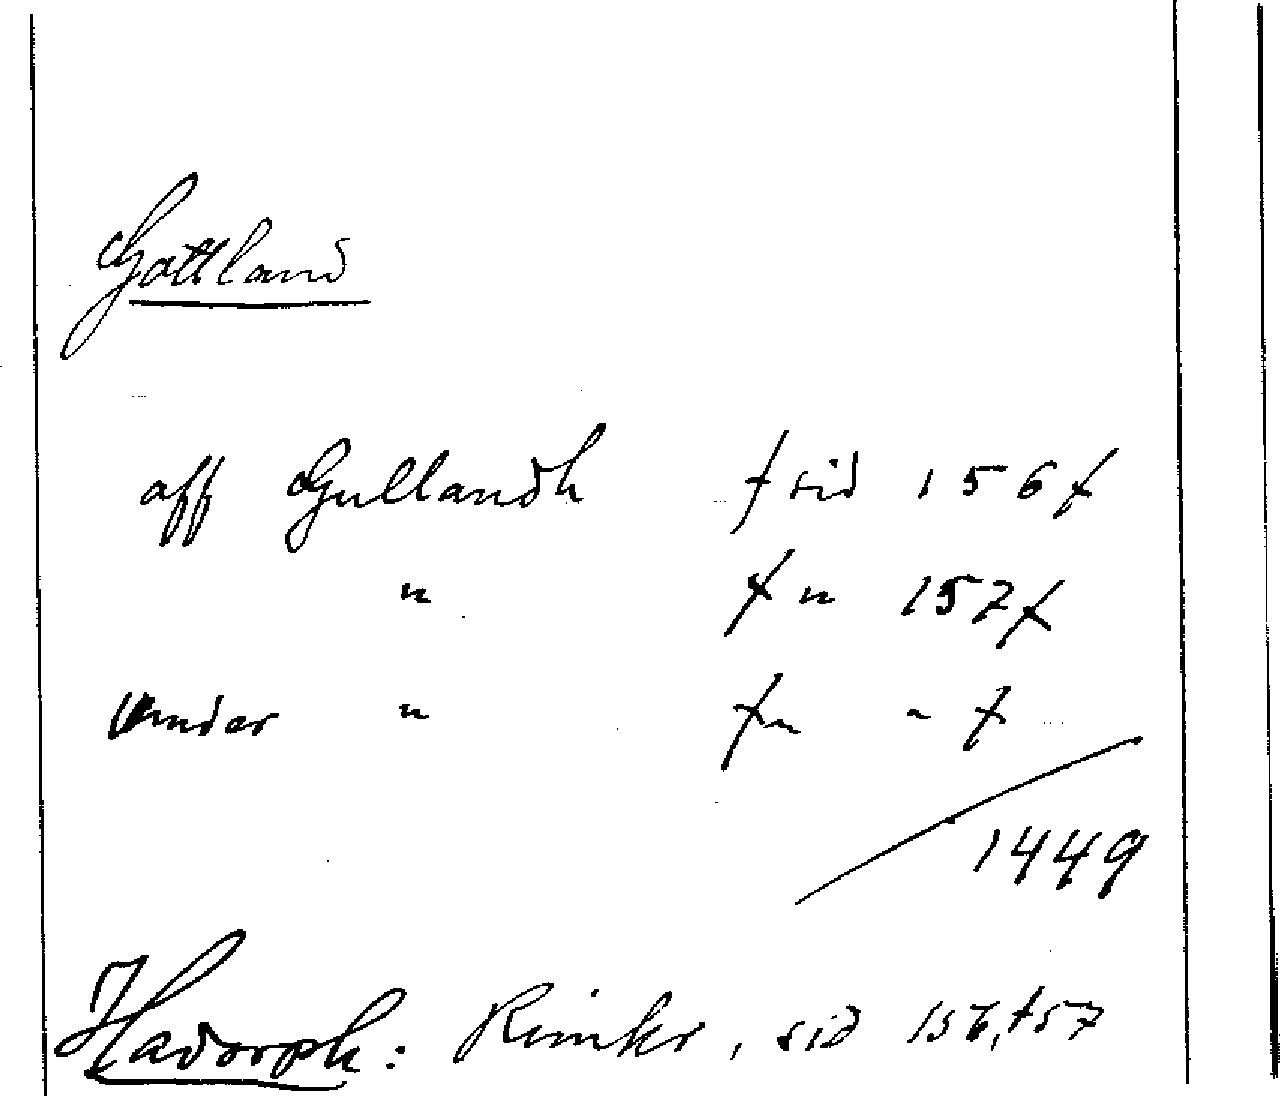 Gottland
aff Gullandh / sid 156 /
" / " 157 /
Vnder " / " " /
1449
Hadorph: Rimkr, sid 156, 157